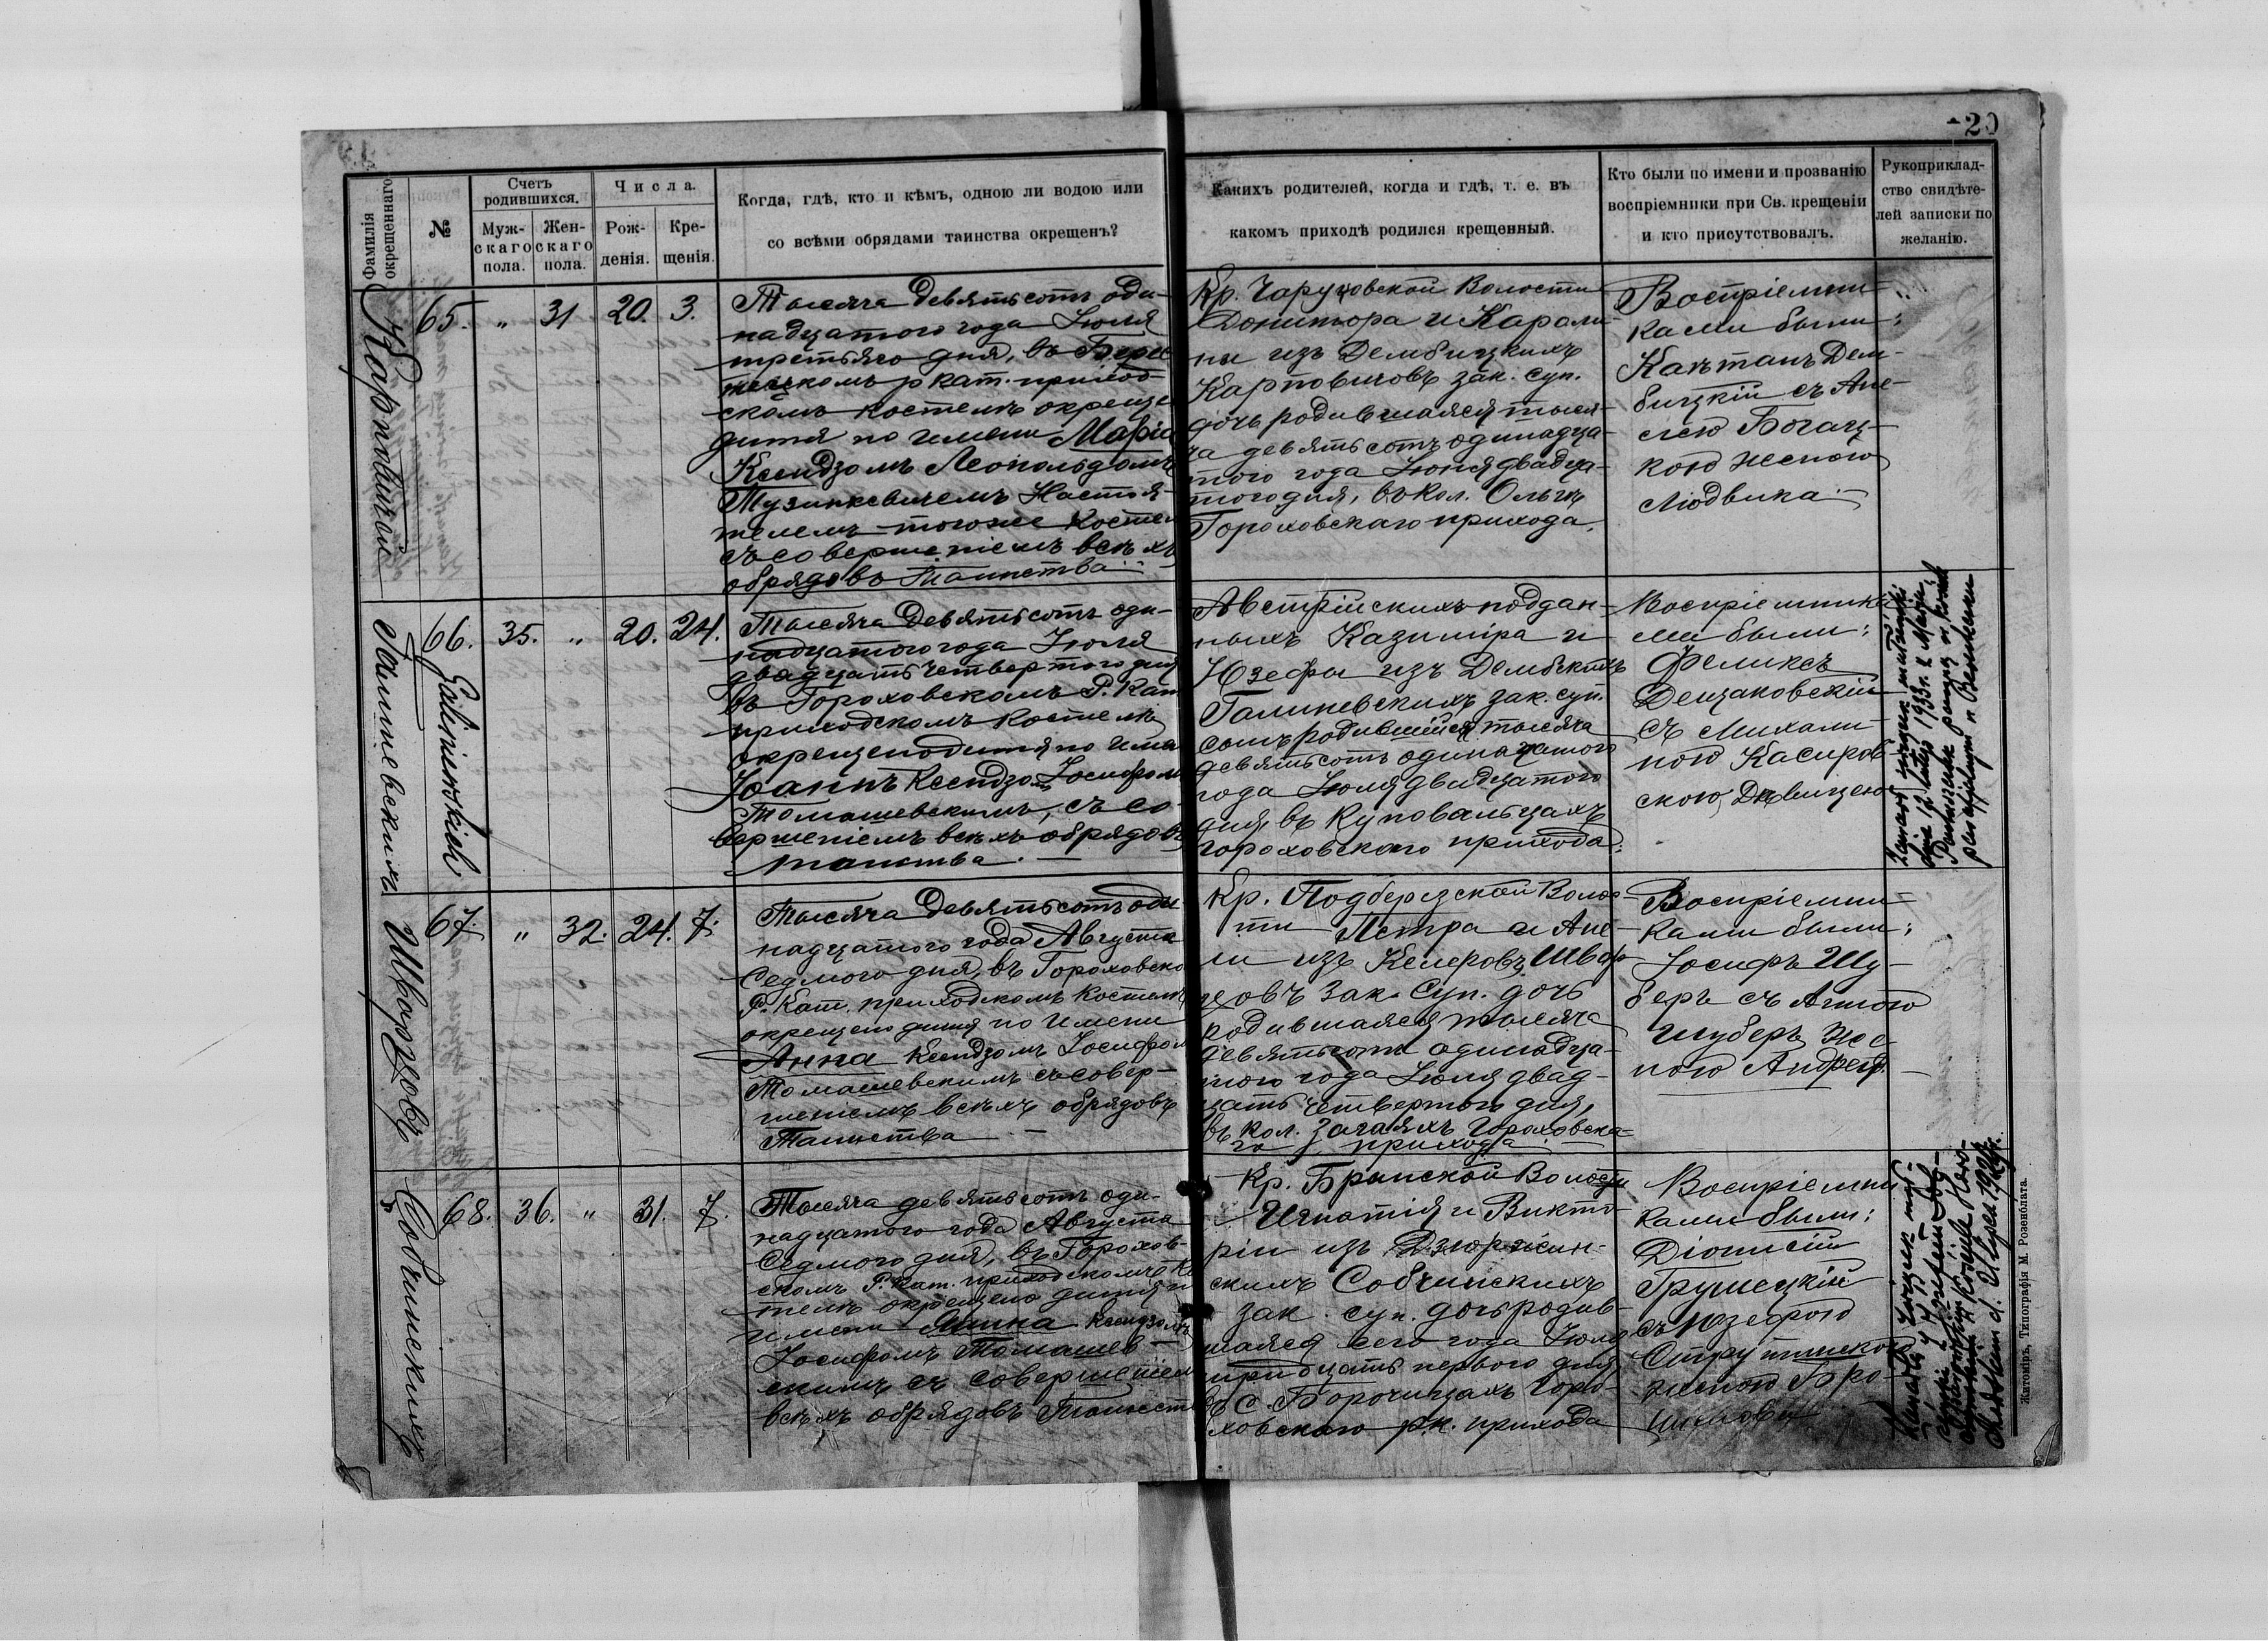 20
Фамилія окрещеннаго
№
Счетъ родившихся.
Муж-скаго пола.
Жен-скаго пола.
Числа.
Рож-денія.
Кре-щенія.
Когда, гдѣ, кто и кѣмъ, одною ли водою или
со всѣми обрядами таинства окрещенъ?
Какихъ родителей, когда и гдѣ, т. е. въ
какомъ приходѣ родился крещенный.
Кто были по имени и прозванію
воспріемники при Св. крещеніи
и кто присутствовалъ.
Рукоприклад-
ство свидѣте-
лей записки по
желанію.
65. „ 31 20. 3.
Тысяча девятьсотъ оди-
надцатого года Іюля
третьяго дня, въ Берес
течскомъ р кат. приход-
скомъ костелѣ окреще
дитя по имени Марія
Ксендзомъ Леопольдомъ
Настоя-
телемъ тогоже Костел
съ совершеніемъ всѣхъ
обрядовъ Таинства
Кр. Чаруковской Волости
и Кароли-
ны изъ Дембицкихъ
Карповичовъ зак. суп.
дочь родившаяся тыся-
ча девятьсотъ одинадца-
того года Іюня двадца-
того дня, въ кол. Ольгѣ
Гороховскаго прихода.
Воспріемни-
ками были:
Каѣтанъ Дем-
бицкій съ Анѣ-
лею Богац-
кою женою
Людвика
66. 35. „ 20. 24.
Галиневскихъ
Galiniewskich
Тысяча Девятьсотъ оди-
надцатого года Іюля
двадцать четвертого дня
въ Гороховскомъ Р. Кат.
приходскомъ костелѣ
окрещено дитя по име
Іоаннъ Ксендзомъ Іосифом
Томашевскимъ, съ со-
вершеніемъ всѣхъ обрядовъ
таинства.
Австрійскихъ поддан-
ныхъ Казиміра и
Юзефы изъ Дембскихъ
Галиневскихъ зак. суп.
сынъ родившійся тысяча
девятьсотъ одинадцатого
года Іюля двадцатого
дня въ Куповальцахъ
Гороховского прихода.
Воспріемника
ми были:
Феликсъ
съ Михали-
ною Касиров-
скою, Дѣвицею
67. „ 32. 24. 7.
Шварцовъ
Тысяча Девятьсотъ оди
надцатого года Августа
Седмого дня, въ Гороховско
Р. Кат. приходскомъ Костелѣ
окрещено дитя по имени
Анна Ксендзомъ Іосифом
Томашевскимъ съ совер-
шеніемъ всѣхъ обрядовъ
Таинства
Кр. Подберезской Волос
ти Петра и Анѣ-
ли изъ Швар
цовъ Зак. Суп. дочь
родившаяся тысяча
девятьсотъ одинадца-
того года Іюля двад-
цать четвертого дня,
въ кол. Гороховска
го прихода
Воспріемни-
ками были:
Іосифъ Шу-
беръ съ Анною
Шуберъ же-
ною Андрея.
68. 36. „ 31. 7.
Собчинскихъ
Тысяча девятьсотъ оди-
надцатого года Августа
Седмого дня, въ Горохов-
скомъ Р. Кат. приходскомъ Ко
телѣ окрещено дитя п
имени Янина Ксендзомъ
Іосифомъ Томашев-
скимъ съ совершеніем
всѣхъ обрядовъ Таинств
Кр. Бранской Волости
Игнатія и Викто-
ріи изъ Дзюржин-
скихъ Собчинскихъ
зак. суп. дочь родив-
шаяся сего года Іюля
тридцать первого дня,
въ С. Борочицахъ Горо-
ховскаго р.к. прихода
Воспріемни
ками были:
Діонисій
Грушецкій
съ Юзефою
женою Бро-
Житомиръ, Типографія М. Розенблата.